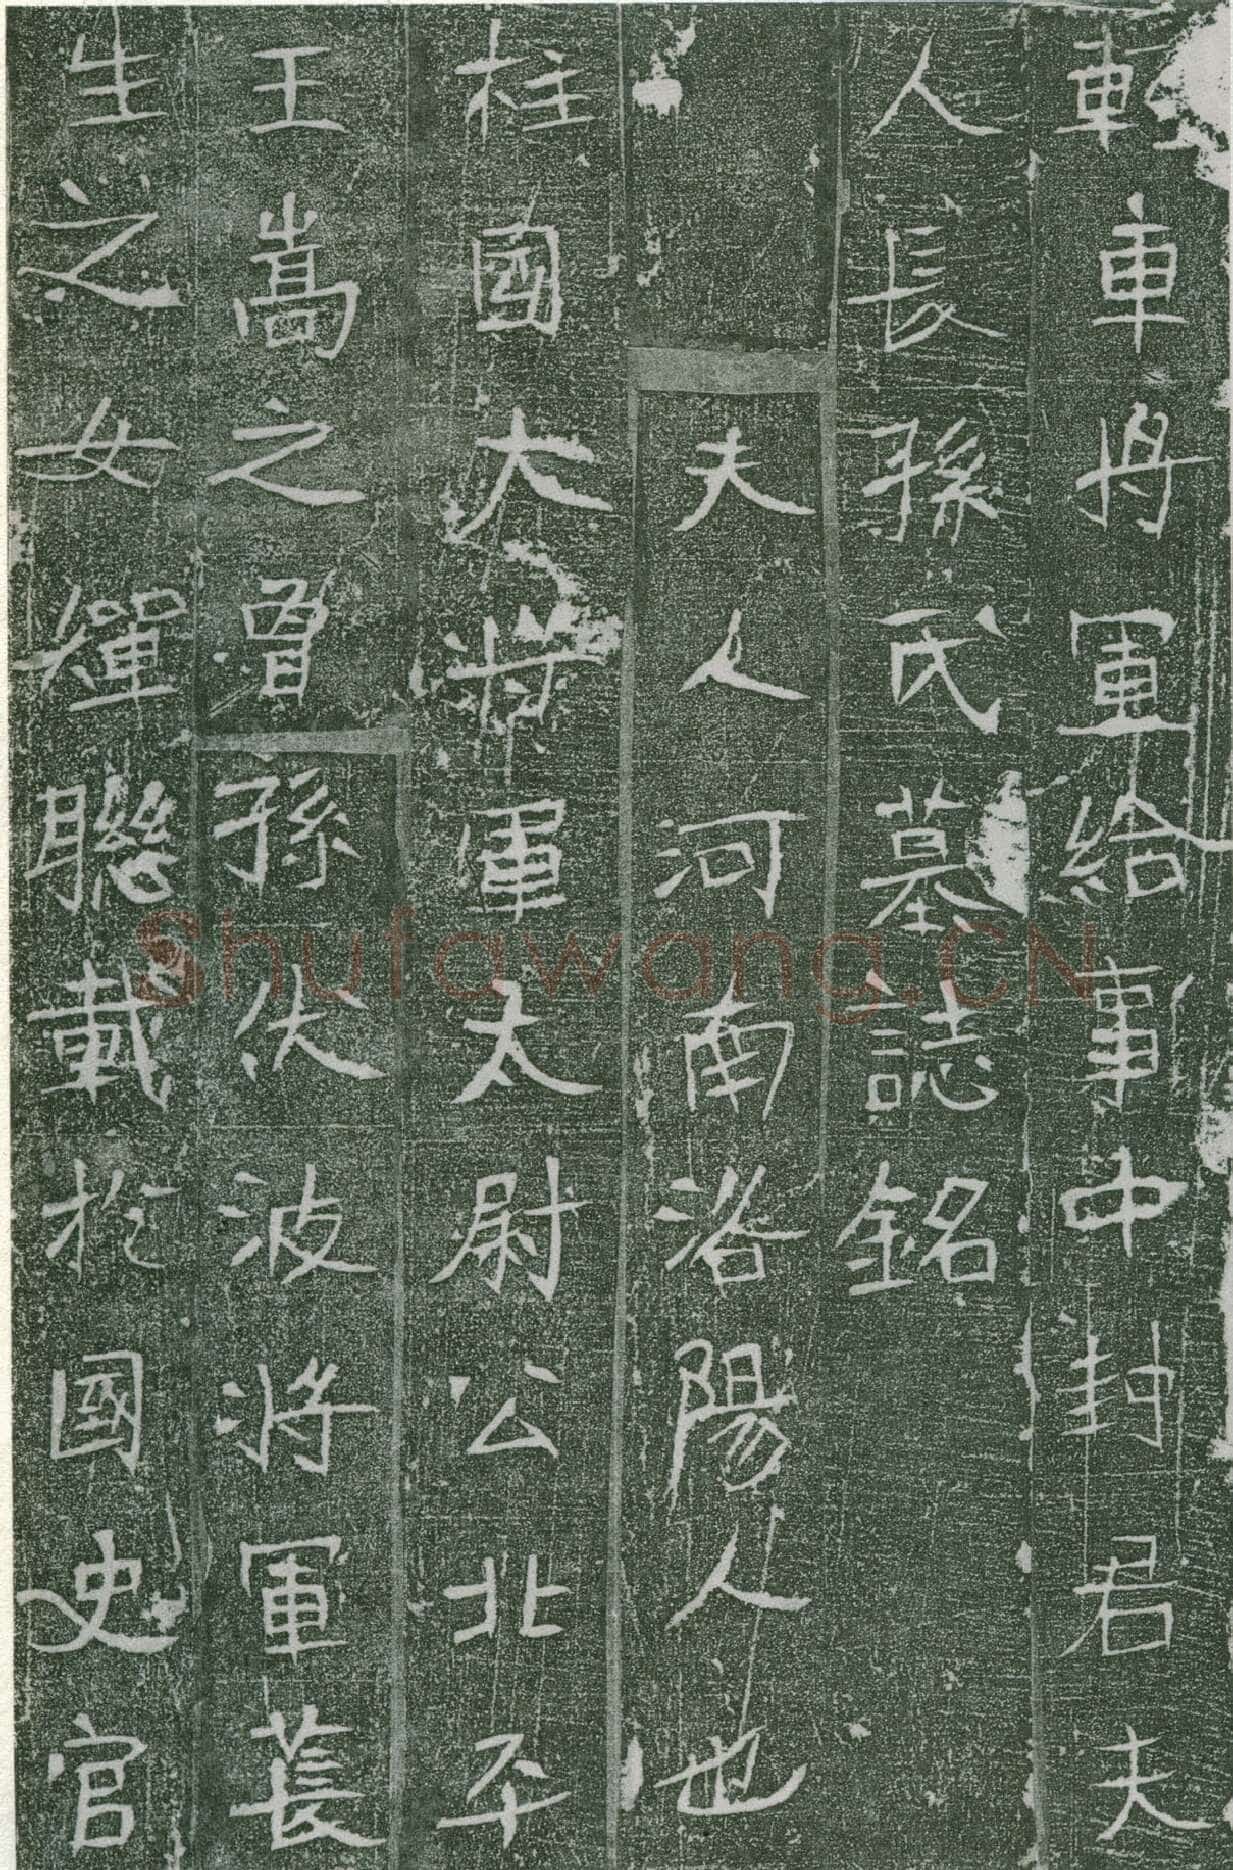 輕車將軍給事中封君夫
人長孫氏墓誌銘
夫人河南洛陽人也
柱國大將軍太尉公北平
王嵩之曾孫伏波將軍萇
生之女繟聯載於國史官
Shufawang.CN